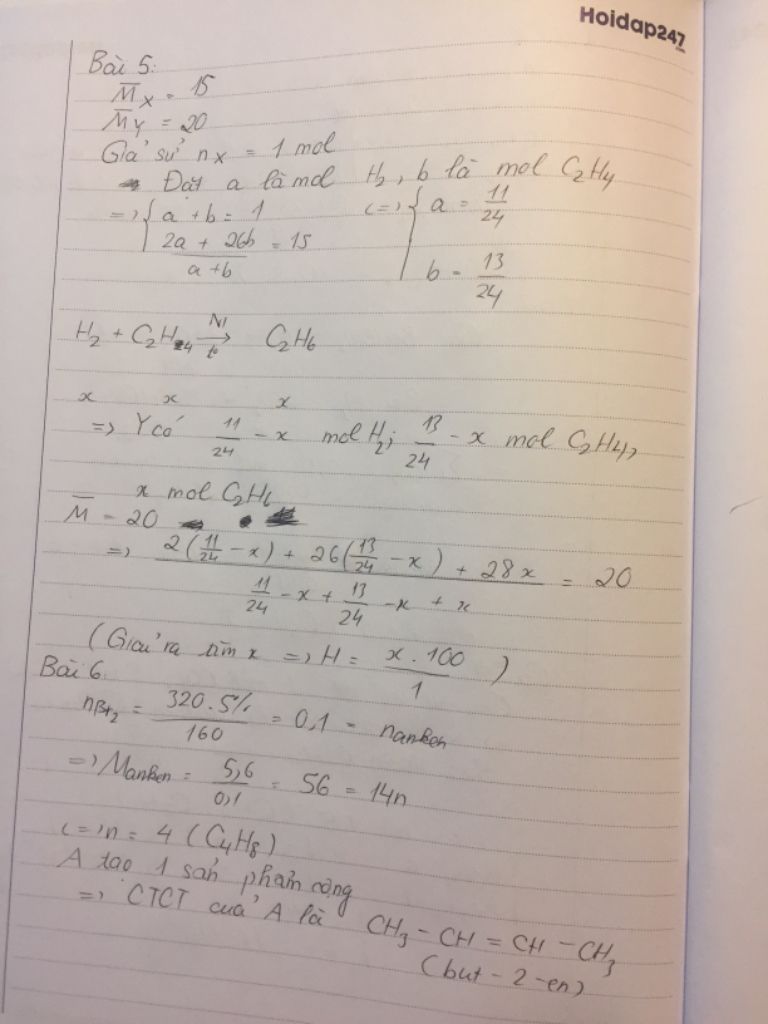 Hoidap247
Bài 5:
M̅x = 15
M̅y = 20
Giả sử nx = 1 mol
Đặt a là mol H₂, b là mol C₂H₄
=> { a + b = 1 <=> { a = 11/24
(2a + 26b)/(a+b) = 15 b = 13/24
H₂ + C₂H₄ →(Ni, t°) C₂H₆
x x x
=> Y có 11/24 - x mol H₂; 13/24 - x mol C₂H₄,
x mol C₂H₆
M̅ = 20
=> (2(11/24 - x) + 26(13/24 - x) + 28x)/(11/24 - x + 13/24 - x + x) = 20
(Giải ra tìm x => H = x.100/1)
Bài 6.
nBr₂ = 320.5%/160 = 0,1 = nanken
=> Manken = 5,6/0,1 = 56 = 14n
<=> n = 4 (C₄H₈)
A tạo 1 sản phẩm cộng
=> CTCT của A là CH₃ - CH = CH - CH₃
(but - 2 - en)